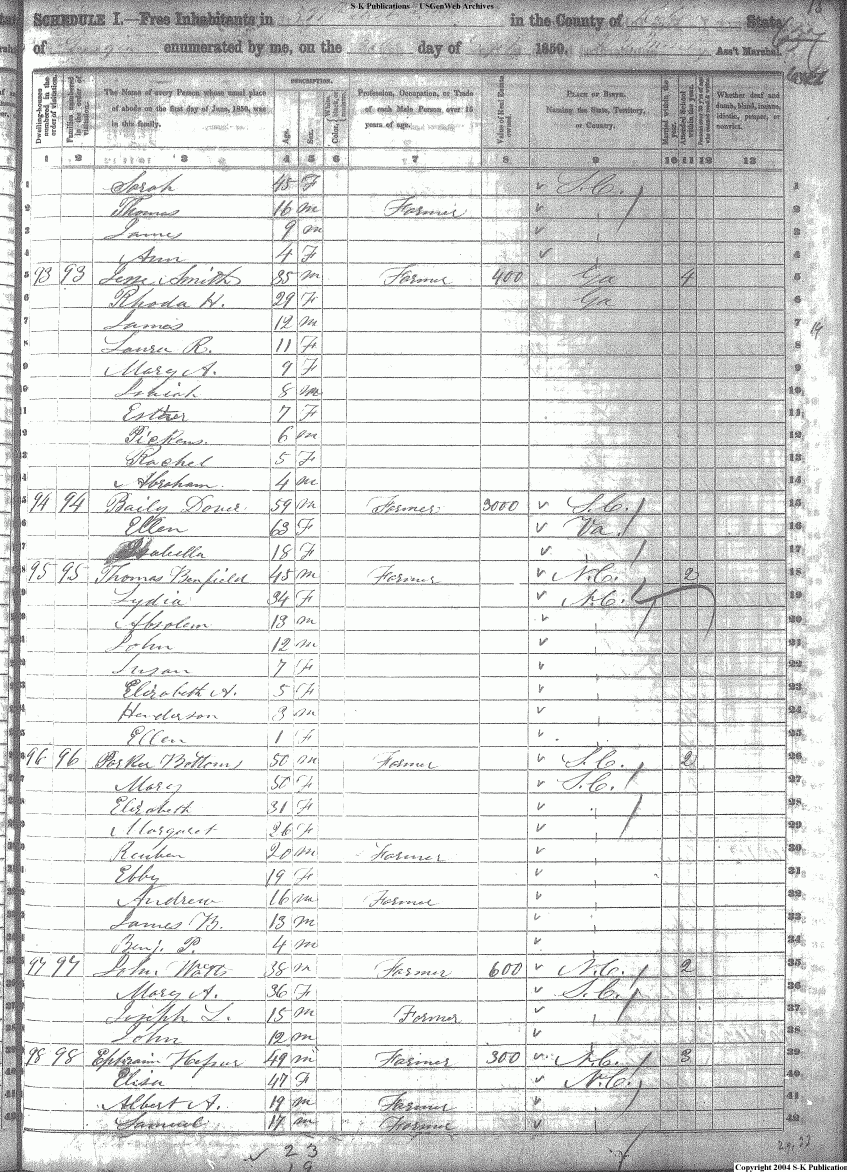 S-K Publications - USGenWeb Archives
SCHEDULE I.—Free Inhabitants in in the County of State
of enumerated by me, on the day of 1850. Ass't Marshal.
Dwelling-houses numbered in the order of visitation.
Families numbered in the order of visitation.
The Name of every Person whose usual place of abode on the first day of June, 1850, was in this family.
DESCRIPTION.
Age.
Sex.
Color,
Profession, Occupation, or Trade of each Male Person over 15 years of age.
Value of Real Estate owned.
PLACE OF BIRTH. Naming the State, Territory, or Country.
Married within the year.
Attended School within the year.
Whether deaf and dumb, blind, insane, idiotic, pauper, or convict.
1 2 3 4 5 6 7 8 9 10 11 12 13
1 Sarah 45 F S.C. 1
2 Thomas 16 m Farmer 2
3 James 9 m 3
4 Ann 4 F 4
5 93 93 Jesse Smith 35 m Farmer 400 Ga 4 5
6 Rhoda H. 29 F Ga 6
7 James 12 m 7
8 Laura R. 11 F 8
9 Mary A. 9 F 9
10 Isaiah 8 m 10
11 Esther 7 F 11
12 Pickens. 6 m 12
13 Rachel 5 F 13
14 Abraham 4 m 14
94 94 Baily Dover 59 m Farmer 3000 S.C. 15
Ellen 63 F Va. 16
Isabella 18 F 17
95 95 Thomas Benfield 45 m Farmer N.C. 2 18
Lydia 34 F N.C. 19
Absolem 13 m 20
John 12 m 21
Susan 7 F 22
Elizabeth A. 5 F 23
Henderson 3 m 24
Ellen 1 F 25
96 96 Parker Bottoms 50 m Farmer S.C. 2 26
Mary 50 F S.C. 27
Elizabeth 31 F 28
Margaret 26 F 29
Reuben 20 m Farmer 30
Ebby 19 F 31
Andrew 16 m Farmer 32
James B. 13 m 33
Benj. P. 4 m 34
97 97 John Watts 38 m Farmer 600 N.C. 2 35
Mary A. 36 F S.C. 36
Joseph L. 15 m Farmer 37
John 12 m 38
98 98 Ephraim 49 m Farmer 300 N.C. 3 39
Elisa 47 F N.C. 40
Albert A. 19 m Farmer 41
Samuel 17 m Farmer 42
23
19
Copyright 2004 S-K Publications